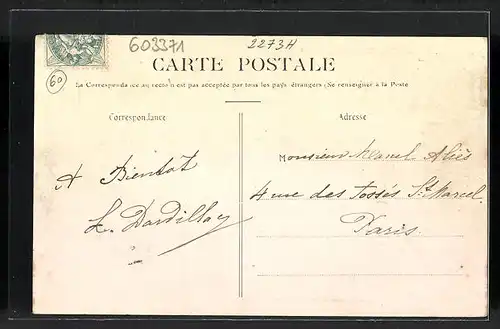 603371
2273H
60
CARTE POSTALE
La Correspondance au recto n'est pas acceptée par tous les pays étrangers (Se renseigner à la Poste
Correspondance
Adresse
A Bientot
L. Dardillay
Monsieur Aliès
4 rue des Fossés St Marcel
Paris